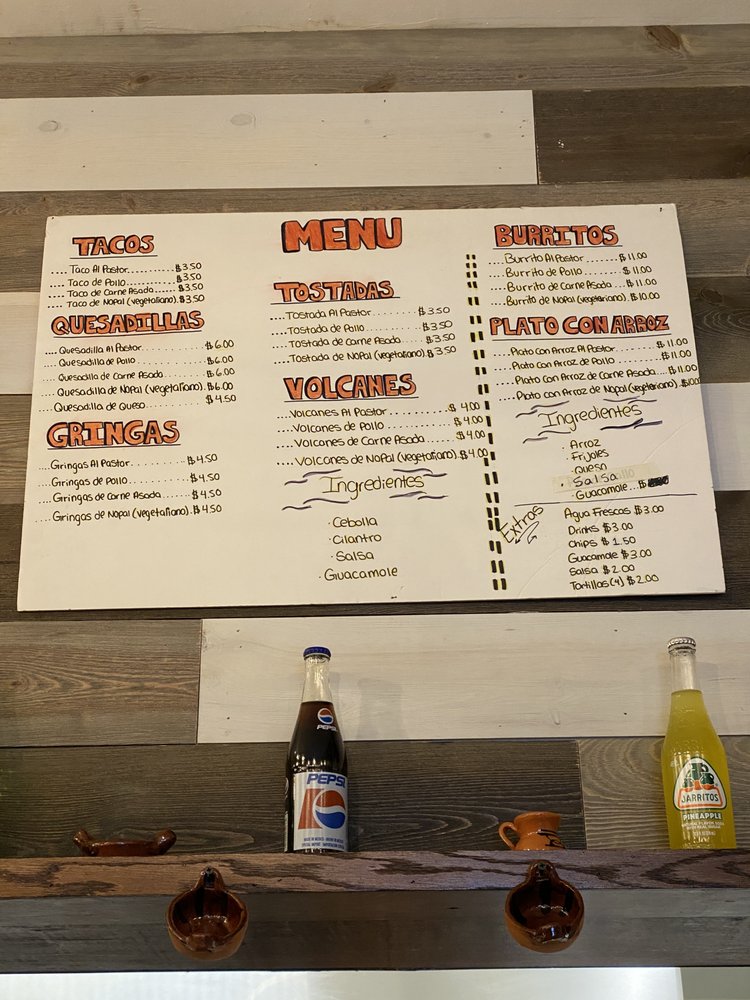 MENU
TACOS
Taco Al Pastor..........$3.50
Taco de Pollo..........$3.50
Taco de Carne Asada.....$3.50
Taco de Nopal (vegetariano).$3.50
QUESADILLAS
Quesadilla Al Pastor...........$6.00
Quesadilla de Pollo............$6.00
Quesadilla de Carne Asada.....$6.00
Quesadilla de Nopal (vegetariano).$6.00
Quesadilla de Queso...........$4.50
GRINGAS
Gringas Al Pastor.........$4.50
Gringas de Pollo........$4.50
Gringas de Carne Asada.....$4.50
Gringas de Nopal (vegetariano).$4.50
TOSTADAS
Tostada Al Pastor...........$3.50
Tostada de Pollo...........$3.50
Tostada de Carne Asada.....$3.50
Tostada de Nopal (vegetariano).$3.50
VOLCANES
Volcanes Al Pastor...........$4.00
Volcanes de Pollo...........$4.00
Volcanes de Carne Asada.....$4.00
Volcanes de Nopal (vegetariano).$4.00
Ingredientes
· Cebolla
· Cilantro
· Salsa
· Guacamole
BURRITOS
Burrito Al Pastor.......$11.00
Burrito de Pollo.......$11.00
Burrito de Carne Asada....$11.00
Burrito de Nopal (vegetariano).$10.00
PLATO CON ARROZ
Plato con Arroz Al Pastor.......$11.00
Plato con Arroz de Pollo.......$11.00
Plato con Arroz de Carne Asada....$11.00
Plato con Arroz de Nopal (vegetariano).
Ingredientes
· Arroz
· Frijoles
· Queso
· Salsa
· Guacamole...$
Extras
Agua Frescas $3.00
Drinks $3.00
Chips $1.50
Guacamole $3.00
Salsa $2.00
Tortillas (4) $2.00
PEPSI
PEPSI
JARRITOS
PINEAPPLE